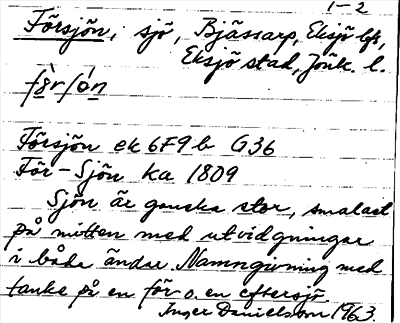 1–2
Försjön, sjö, Bjässarp, Eksjö lfs,
Eksjö stad, Jönk. l.
Försjön ek 6F9b G36
För-Sjön ka 1809
Sjön är ganska stor, smalast
på mitten med utvidgningar
i båda ändar. Namngivning med
tanke på en för- o. en eftersjö.
Inger Danielsson 1963.